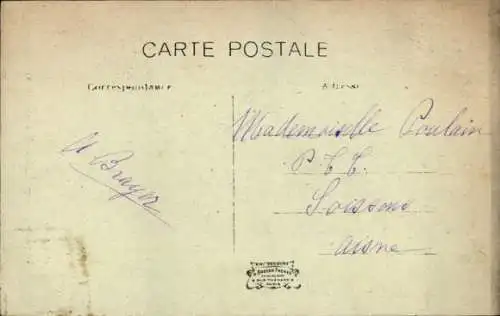 CARTE POSTALE
Correspondance
Adresse
Mademoiselle Poulain
P.T.T.
Soissons
Aisne
Brayer
PARIS